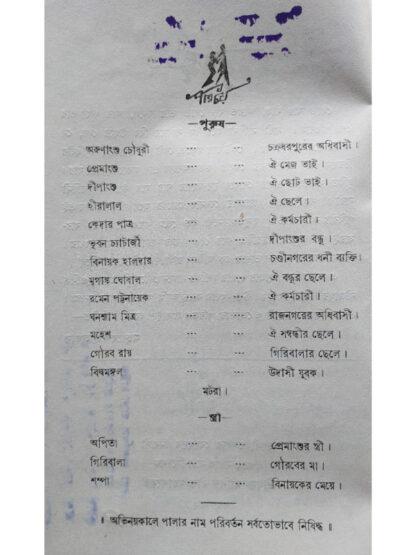 পরিচয়
—পুরুষ—
অরুণাংশু চৌধুরী ... ... চক্রধরপুরের অধিবাসী।
প্রেমাংশু ... ... ঐ মেজ ভাই।
দীপাংশু ... ... ঐ ছোট ভাই।
হীরালাল ... ... ঐ ছেলে।
কেদার পাত্র ... ... ঐ কর্মচারী।
ভূবন চ্যাটার্জী ... ... দীপাংশুর বন্ধু।
বিনায়ক হালদার ... ... চণ্ডীনগরের ধনী ব্যক্তি।
মৃগায় ঘোষাল ... ... ঐ বন্ধুর ছেলে।
রমেন পট্টনায়েক ... ... ঐ কর্মচারী।
ঘনশ্যাম মিত্র ... ... রাজনগরের অধিবাসী।
মহেশ ... ... ঐ সম্বন্ধীর ছেলে।
গৌরব রায় ... ... গিরিবালার ছেলে।
বিল্বমঙ্গল ... ... উদাসী যুবক।
মটরা।
—স্ত্রী—
অর্পিতা ... ... প্রেমাংশুর স্ত্রী।
গিরিবালা ... ... গৌরবের মা।
শম্পা ... ... বিনায়কের মেয়ে।
॥ অভিনয়কালে পালার নাম পরিবর্তন সর্বতোভাবে নিষিদ্ধ ॥